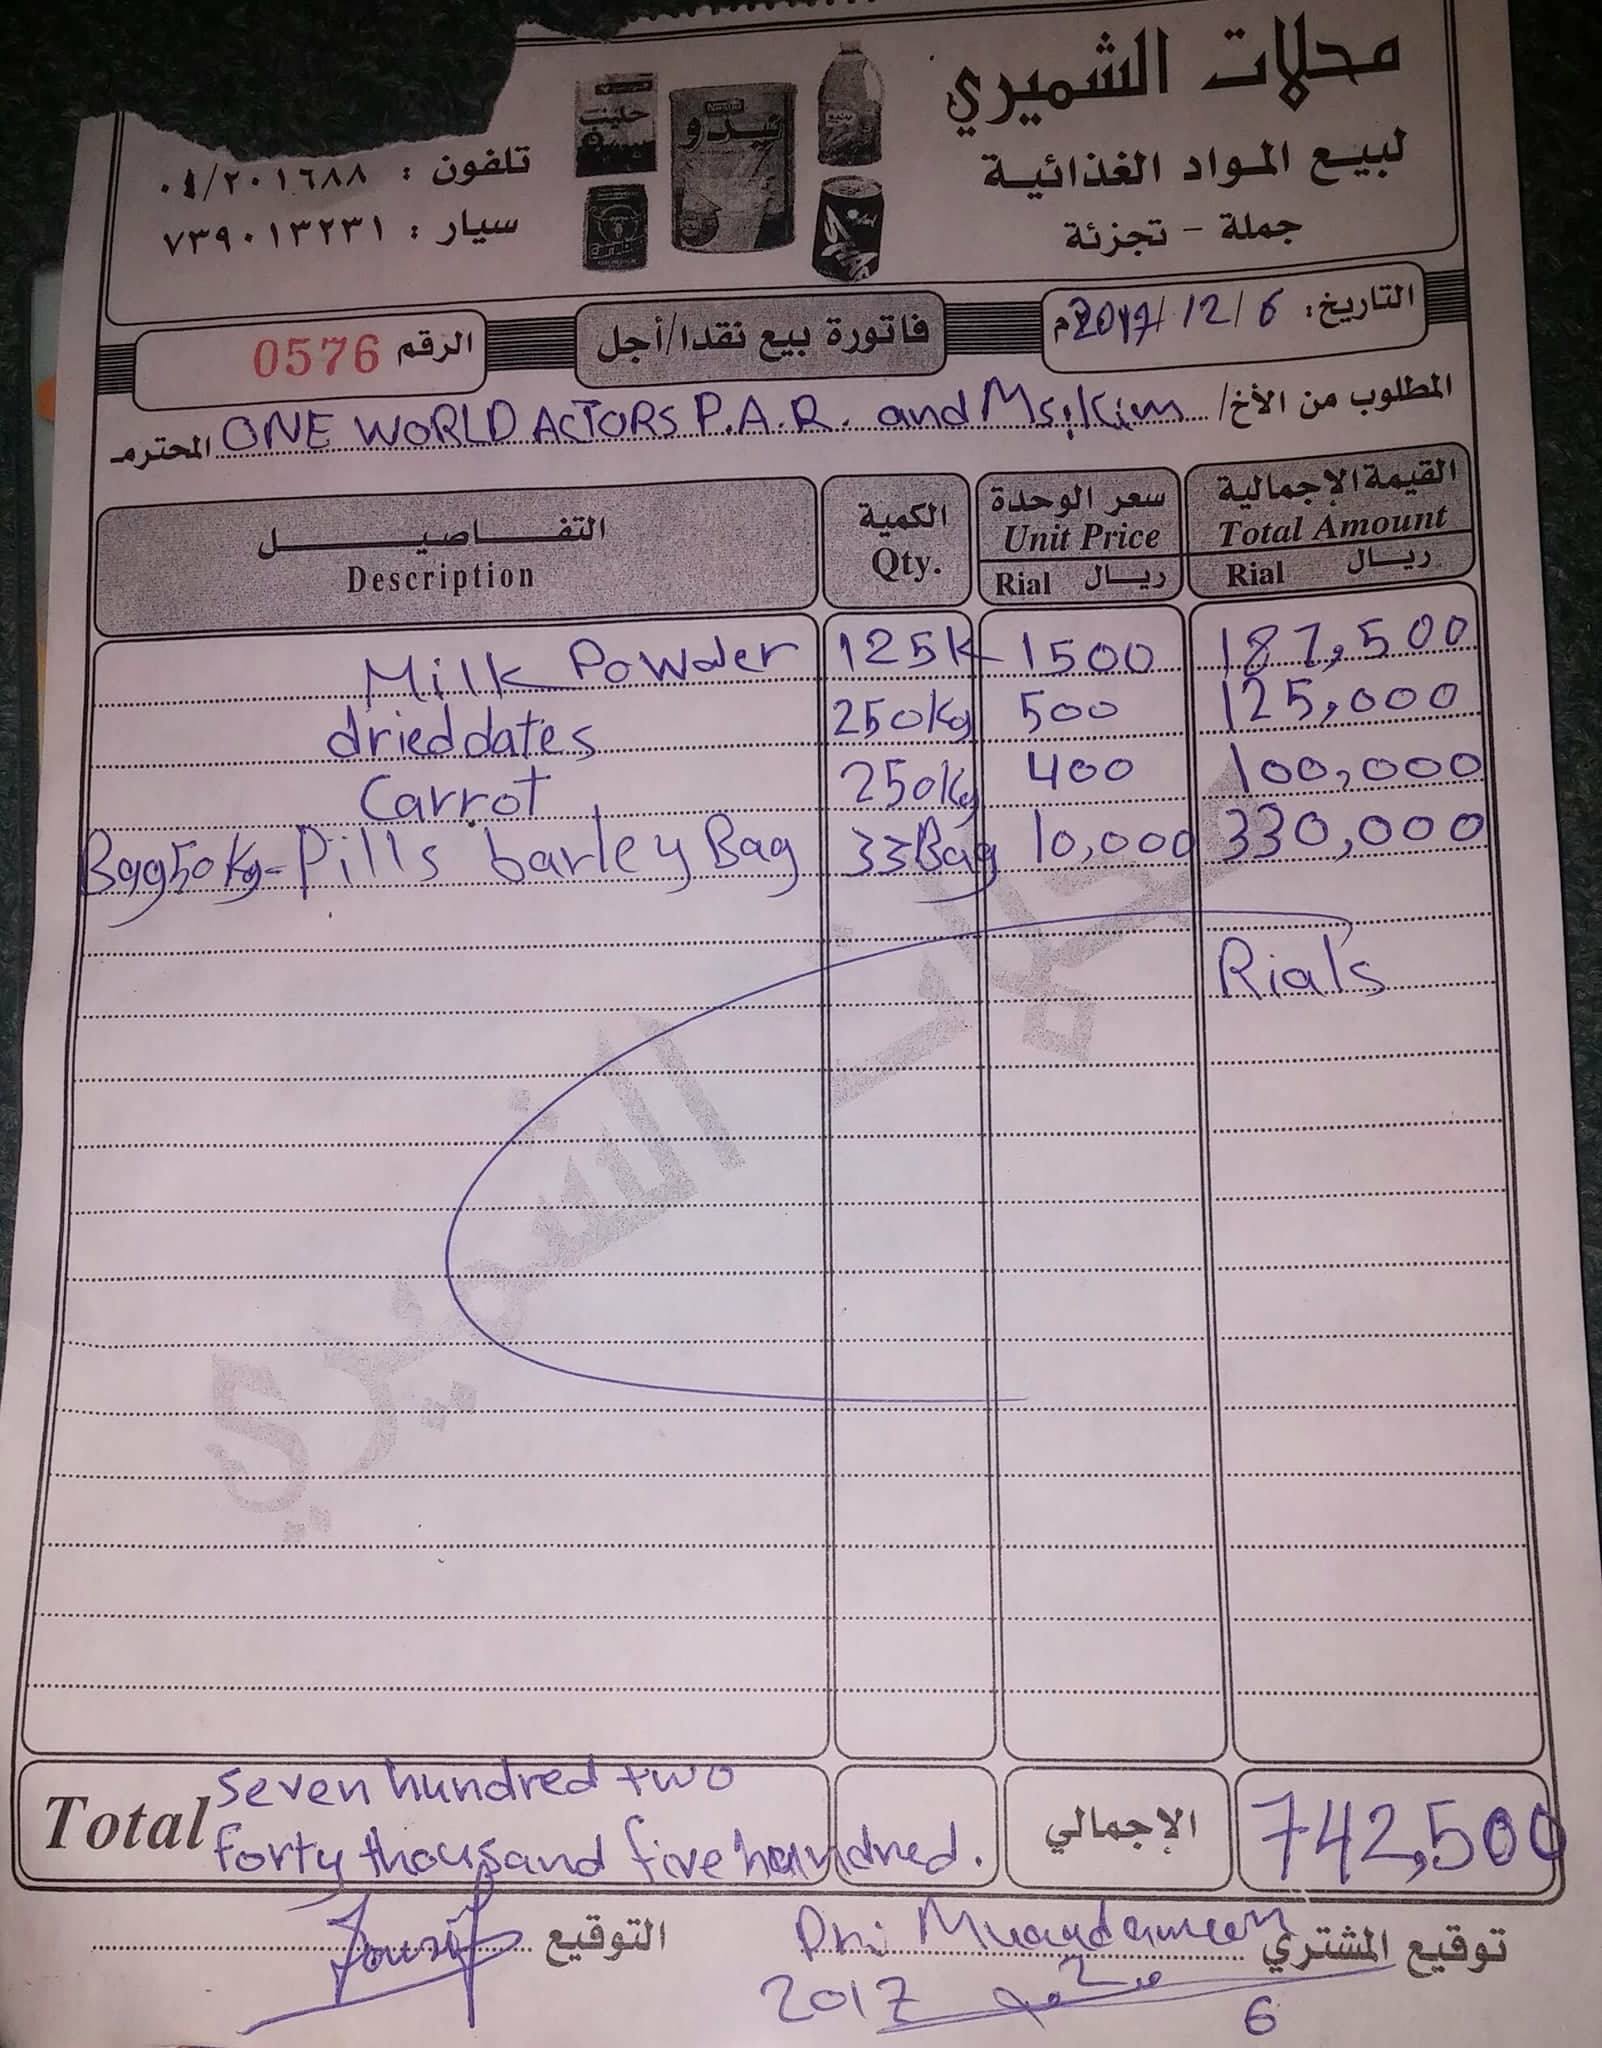 محلات الشميري
لبيع المواد الغذائية
جملة - تجزئة
تلفون : ٠٤/٢٠١٦٨٨
سيار : ٧٣٩٠١٣٢٣١
نيدو
التاريخ: 2017/12/6م
فاتورة بيع نقدا/أجل
الرقم 0576
المطلوب من الأخ/ ONE WORLD ACTORS P.A.R. and Ms: Kim المحترم
التفاصيل الكمية سعر الوحدة القيمة الإجمالية
Description Qty. Unit Price Total Amount
Rial ريال Rial ريال
Milk Powder 125K 1500 187,500
dried dates 250Kg 500 125,000
Carrot 250Kg 400 100,000
Bag50Kg-Pills barley Bag 33Bag 10,000 330,000
Rial's
محلات الشميري
Total seven hundred two
forty thousand five hundred. الإجمالي 742,500
توقيع المشتري
التوقيع
2017
6